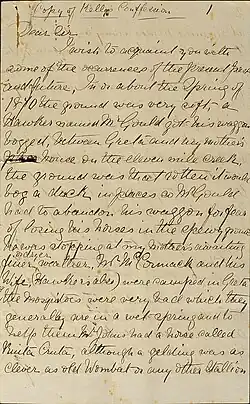 Copy of Kellys Confession 1
Dear Sir
I wish to acquaint you with
some of the occurrences of the present past
and future, In or about the spring of
1870 the ground was very soft a
Hawker named Mr Gould got his waggon
bogged, between Greta and my mother's
house on the eleven mile creek,
the ground was that rotten it would
bog a duck in places as Mr Gould
had to abandon his waggon for fear
of losing his horses in the spewy ground
he was stopping at my mothers awaiting
finer weather, Mr McCormack and his
wife (Hawkers also) were camped in Greta
the mosquitoes were very bad which they
generally are in a wet spring and to
help them Mr Johns had a horse called
Ruita Cruta, although a gelding was as
clever as old Wombat or any other Stallion